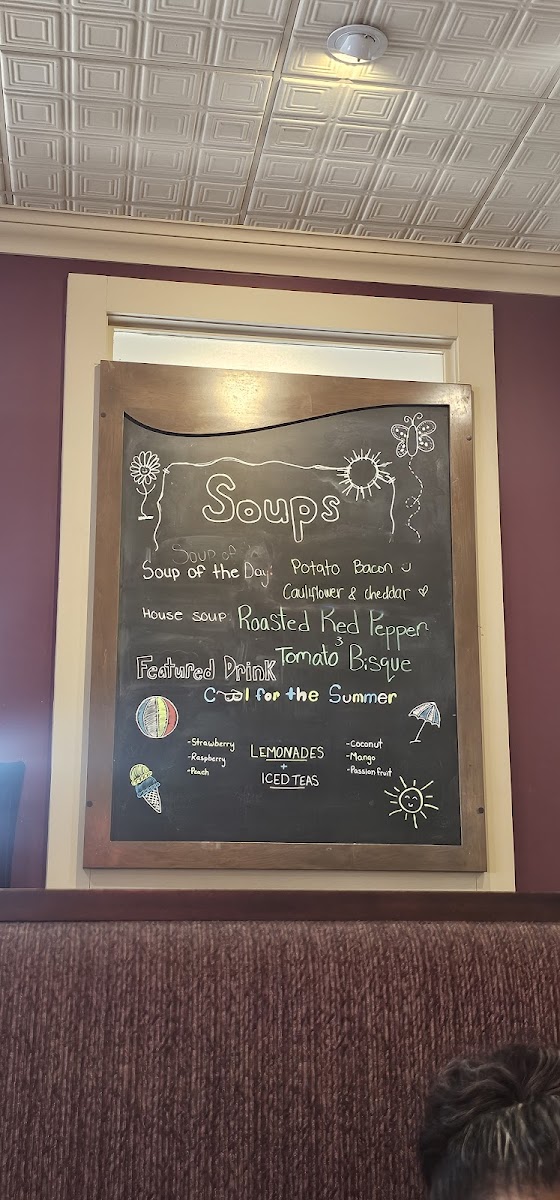 Soups
Soup of
Soup of the Day: Potato Bacon
Cauliflower & cheddar
House soup: Roasted Red Pepper
&
Tomato Bisque
Featured Drink
Cool for the Summer
-Strawberry
-Raspberry
-Peach
LEMONADES
+
ICED TEAS
-Coconut
-Mango
-Passion fruit